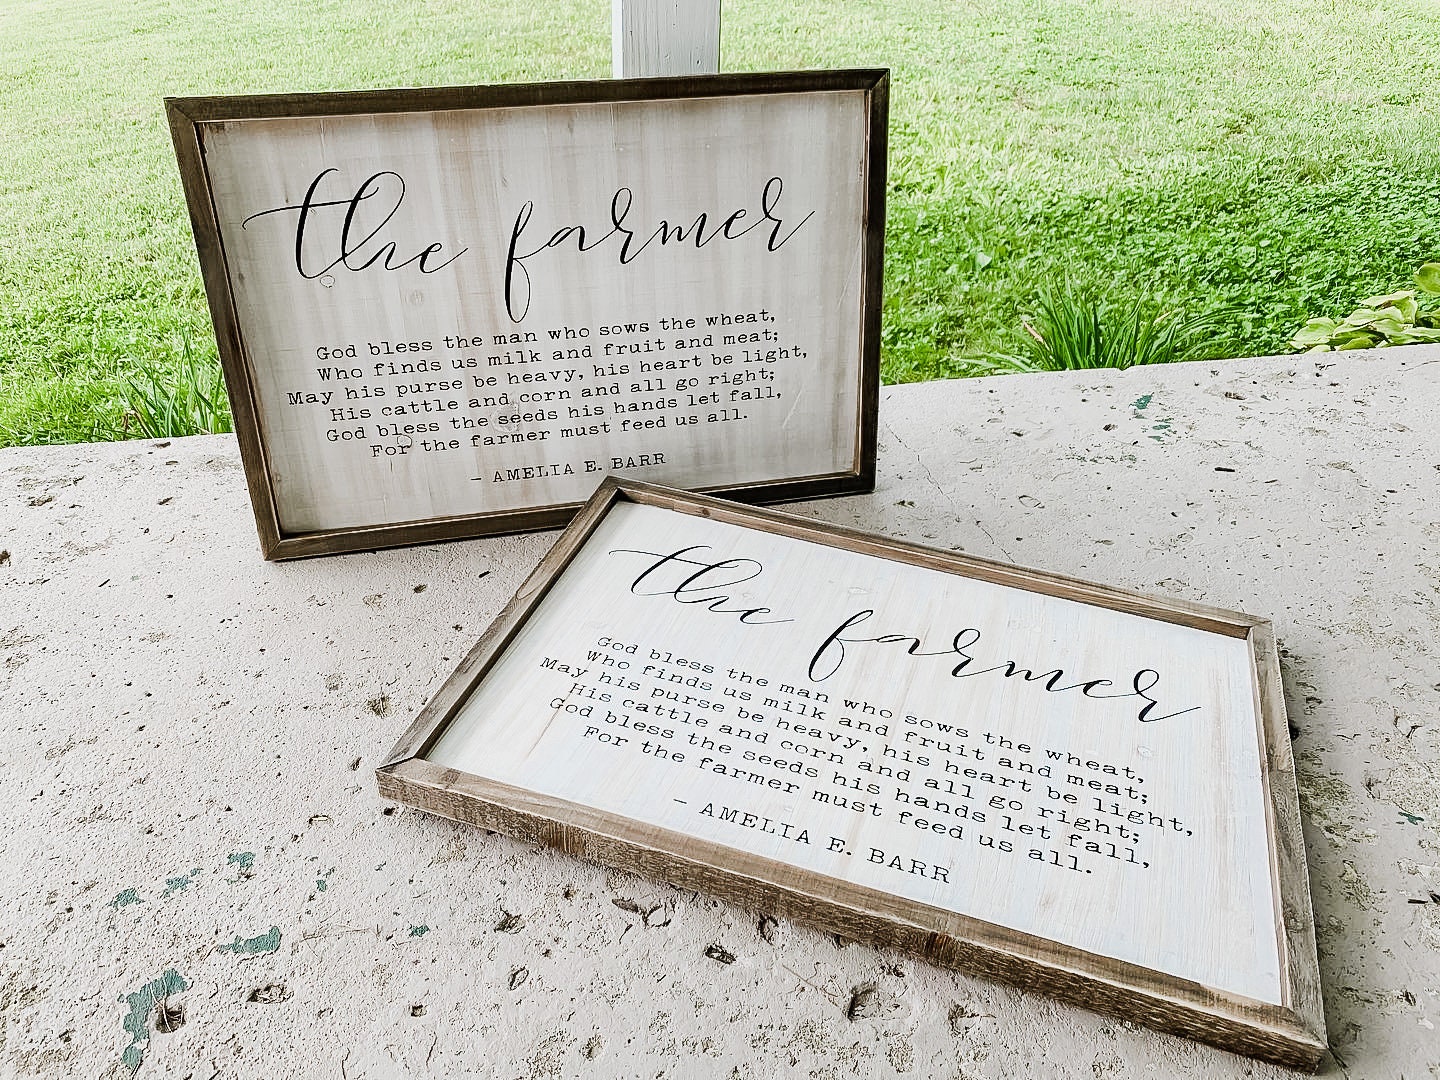 the farmer
God bless the man who sows the wheat,
Who finds us milk and fruit and meat;
May his purse be heavy, his heart be light,
His cattle and corn and all go right;
God bless the seeds his hands let fall,
For the farmer must feed us all.
- AMELIA E. BARR
the farmer
God bless the man who sows the wheat,
Who finds us milk and fruit and meat;
May his purse be heavy, his heart be light,
His cattle and corn and all go right;
God bless the seeds his hands let fall,
For the farmer must feed us all.
- AMELIA E. BARR